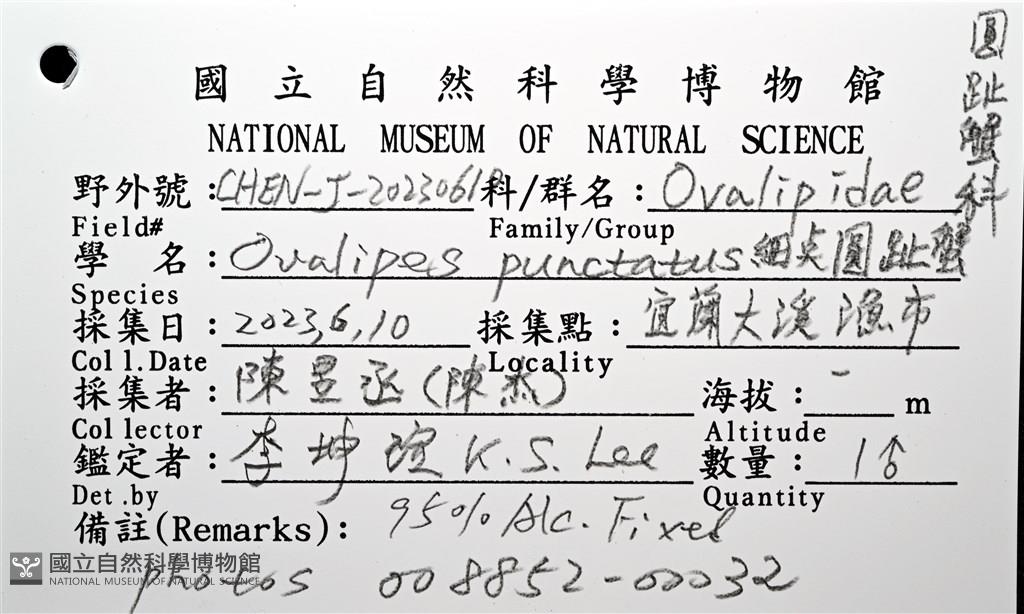 國立自然科學博物館
NATIONAL MUSEUM OF NATURAL SCIENCE
圓趾蟹科
野外號：CHEN-J-20230610 科/群名：Ovalipidae
Field# Family/Group
學 名：Ovalipes punctatus 細点圓趾蟹
Species
採集日：2023,6,10 採集點：宜蘭大溪漁市
Coll.Date Locality
採集者：陳昱丞(陳杰) 海拔：- m
Collector Altitude
鑑定者：李坤瑄 K.S. Lee 數量：1♂
Det.by Quantity
備註(Remarks)：95% Alc. Fixed
photos 008852-00032
國立自然科學博物館
NATIONAL MUSEUM OF NATURAL SCIENCE